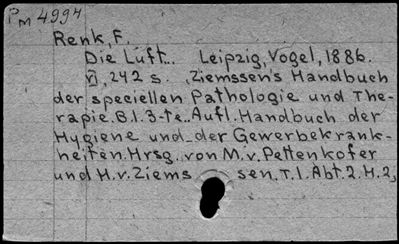 Pm 4994
Renk, F.
Die Luft.. Leipzig, Vogel, 1886.
VI, 242 s. Ziemssen's Handbuch
der speciellen Pathologie und The-
rapie. B.1. 3-te.. Aufl. Handbuch der
Hygiene und der Gewerbekrank-
heiten. Hrsg. von M. v. Pettenkofer
und H. v. Ziemssen. T.1. Abt. 2. H. 2,